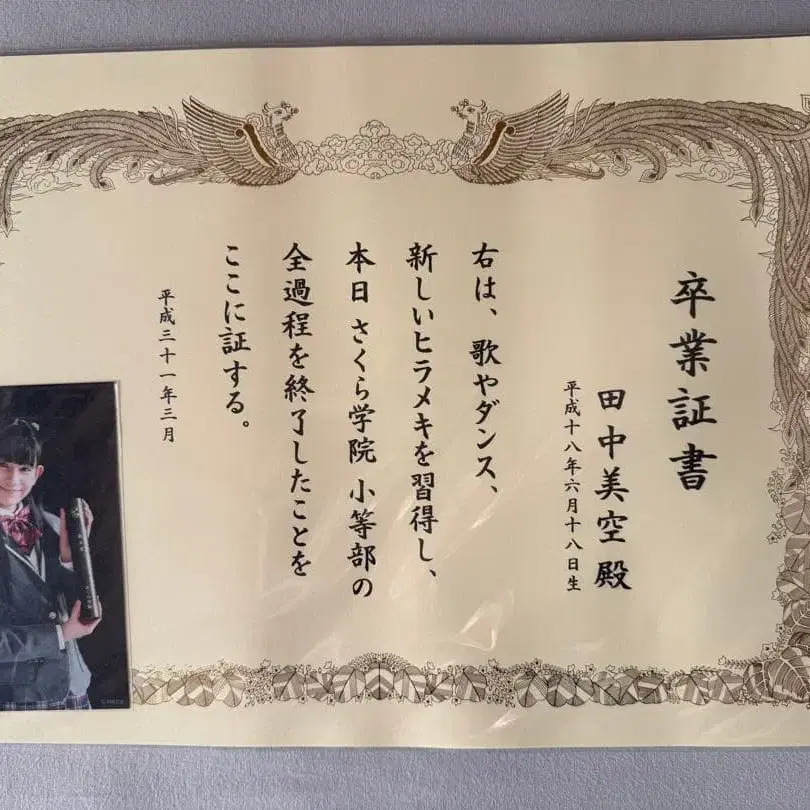 卒業証書
田中美空殿
平成十八年六月十八日生
右は、歌やダンス、
新しいヒラメキを習得し、
本日 さくら学院 小等部の
全過程を終了したことを
ここに証する。
平成三十一年三月